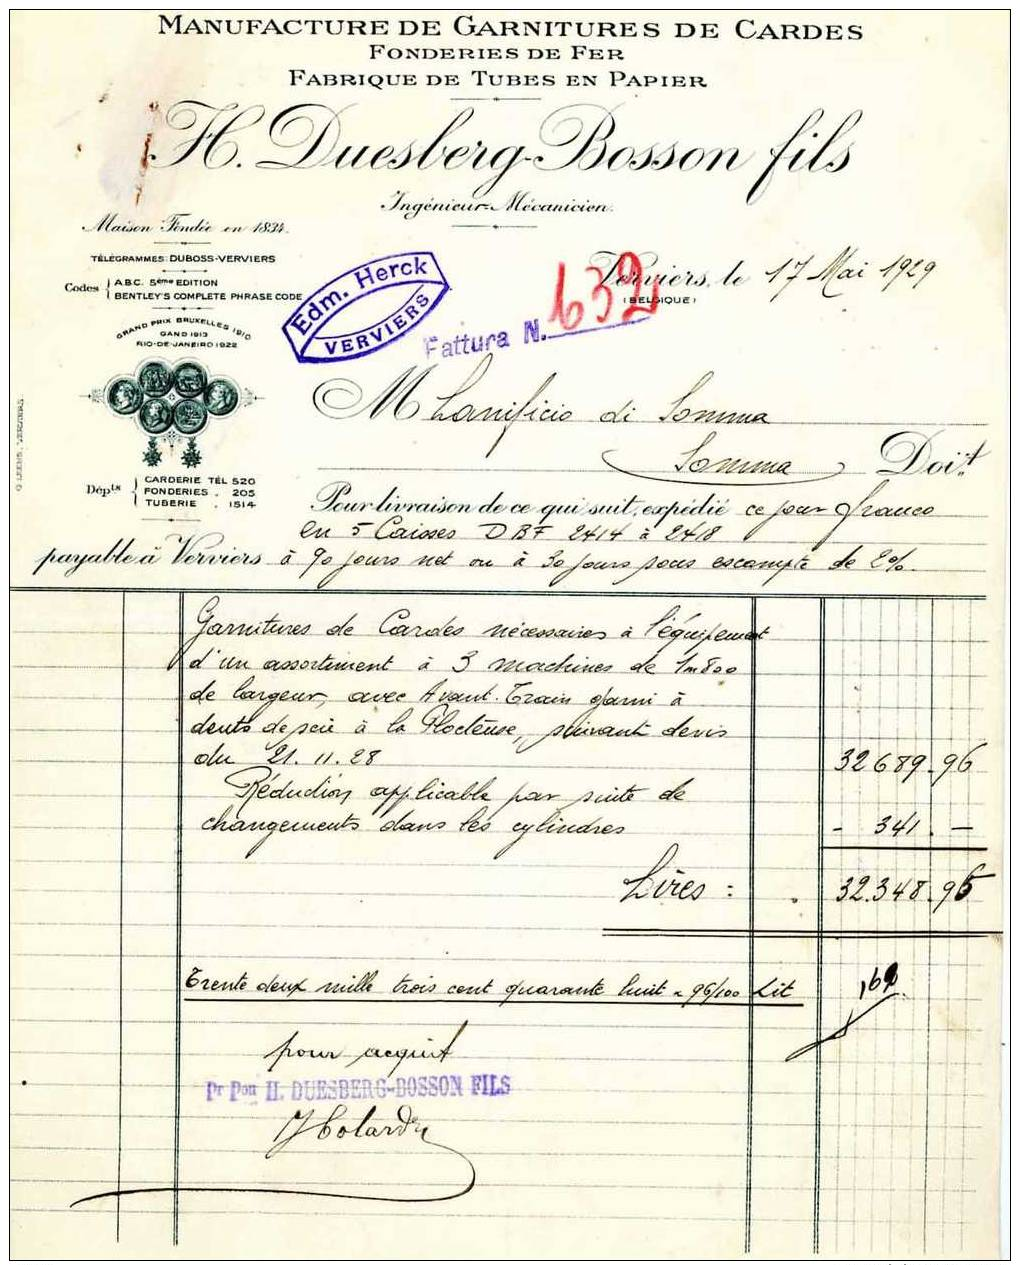 MANUFACTURE DE GARNITURES DE CARDES
FONDERIES DE FER
FABRIQUE DE TUBES EN PAPIER
H. Duesberg-Bosson fils
Ingénieur-Mécanicien.
Maison Fondée en 1834.
TÉLÉGRAMMES: DUBOSS-VERVIERS
Codes { A.B.C. 5ème EDITION
BENTLEY'S COMPLETE PHRASE CODE
GRAND PRIX BRUXELLES 1910
GAND 1913
RIO-DE-JANEIRO 1922
Edm. Herck
VERVIERS
Verviers, le 17 Mai 1929
(BELGIQUE)
Fattura N. 632
M Lanificio di Somma
Somma Doit
Dépts { CARDERIE TÉL 520
FONDERIES . 205
TUBERIE . 1514
Pour livraison de ce qui suit, expédié ce jour franco
en 5 Caisses DBF 2414 à 2418
payable à Verviers à 90 jours net ou à 30 jours sous escompte de 2%.
Garnitures de Cardes nécessaires à l'équipement
d'un assortiment à 3 machines de 1m800
de largeur, avec Avant-Train garni à
dents de scie à la Flocteuse, suivant devis
du 21.11.28 32689.96
Réduction applicable par suite de
changements dans les cylindres - 341. -
Lires : 32.348.96
Trente deux mille trois cent quarante huit - 96/100 Lit
pour acquit
Pr Pon H. DUESBERG-BOSSON FILS